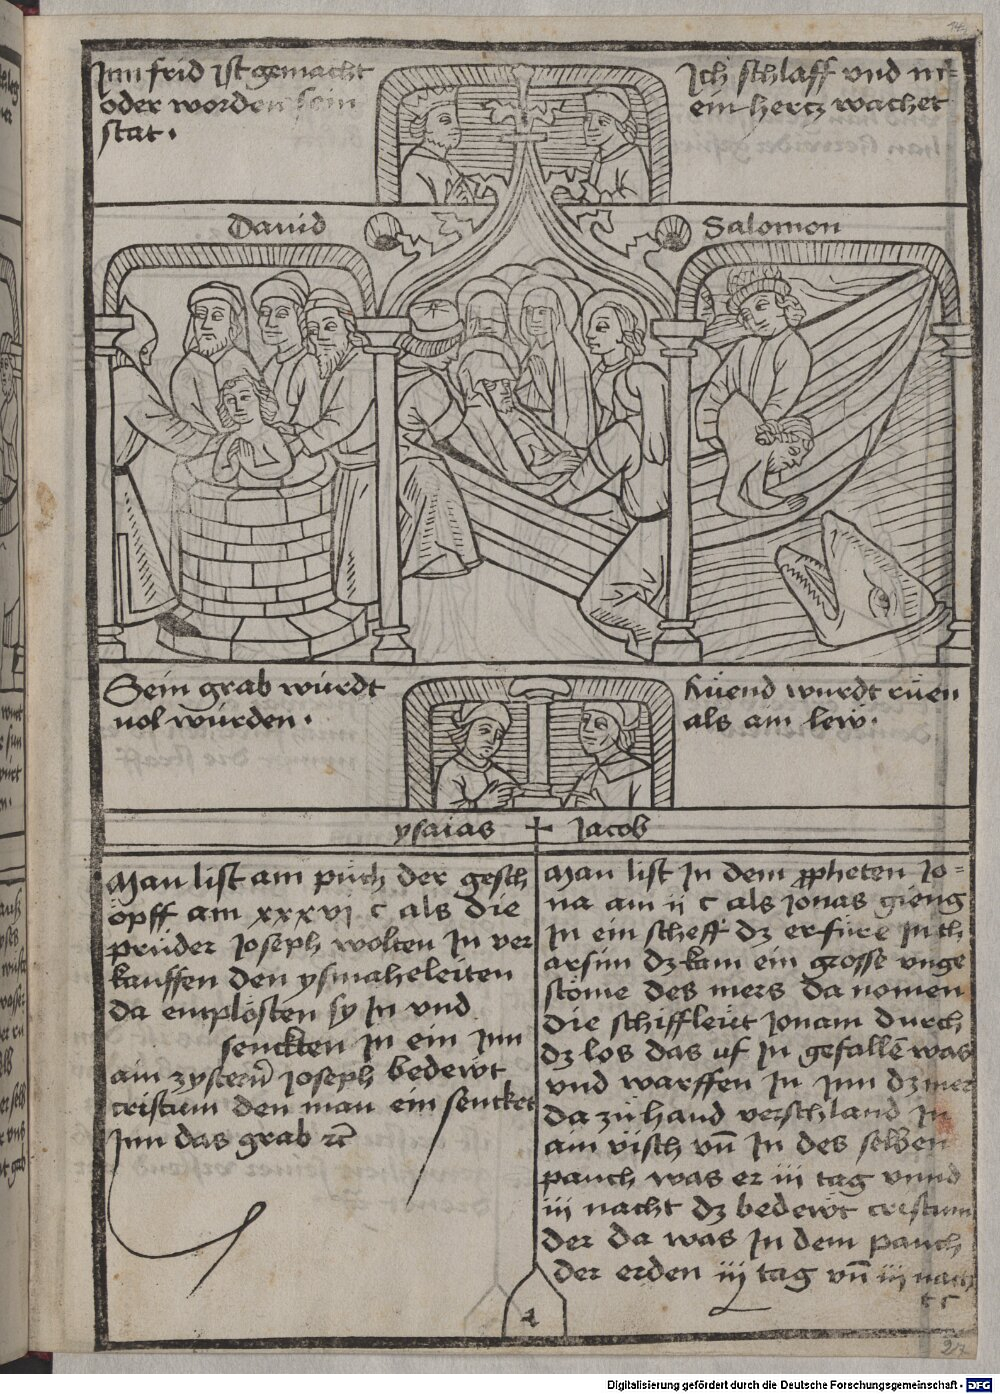 Jnn frid ist gemacht
oder worden sein
stat.
Jch schlaff vnd m=
ein hertz wachet
Dauid
Salomon
Sein grab wurdt
vol wurden.
Ruend wurdt ruen
als ain lew.
ysaias
Jacob
Man list am puch der gesch
öpff am xxxvj c als die
prüder Joseph wolten Jn ver
kauffen den ysmaheleiten
da emplösten sy Jn vnd
senckten Jn ein Jnn
ain zystern Joseph bedewt
cristum den man ein sencket
Jnn das grab
Man list Jn dem ppheten Jo=
na am ij c als Jonas gieng
Jn ein scheff dz er füre Jn th
arsim dz kam ein grosse vnge
stöme des mers da nomen
die schiffleüt Jonam durch
dz los das uf Jn gefallē was
vnd warffen Jn Jnn dz mer
da zu hand verschland Jn
ain visch vn̄ Jn des selben
pauch was er iij tag vnnd
iij nacht dz bedewt cristum
der da was Jn dem pauch
der erden iij tag vn̄ iij nach
t c
27
Digitalisierung gefördert durch die Deutsche Forschungsgemeinschaft - DFG